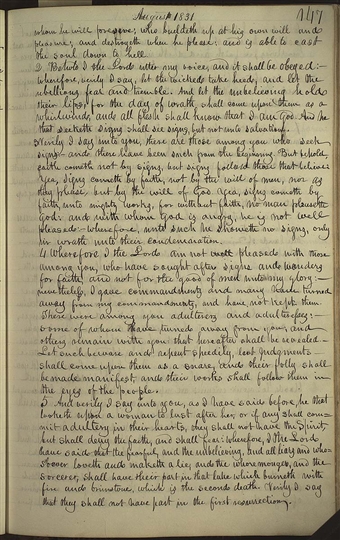 August 1831
147
whom he will preserve; who buildeth up at his own will and
pleasure; and destroyeth when he please: and is able to cast
the soul down to hell.
2. Behold I the Lord utter my voice, and it shall be obeyed:—
wherefore, verily I say, let the wicked take heed, and let the
rebellious fear and tremble: And let the unbelieving hold
their lips, for the day of wrath shall come upon them as a
whirlwind, and all flesh shall know that I am God. And he
that seeketh signs shall see signs, but not unto salvation.
Verily I say unto you, there are those among you who seek
signs: and there have been such from the beginning. But behold,
faith cometh not by signs, but signs follow those that believe:
Yea, signs cometh by faith, not by the will of men, nor as
they please, but by the will of God. Yea, signs cometh by
faith, unto mighty works, for without faith, no man pleaseth
God: and with whom God is angry, he is not well
pleased: wherefore, unto such he showeth no signs, only
in wrath unto their condemnation.
4. Wherefore I the Lord am not well pleased with those
among you, who have sought after signs and wonders
for faith, and not for the good of men unto my glory—
nevertheless, I gave commandments and many have turned
away from my commandments, and have not kept them.
There were among you adulterers and adulteresses:
some of whom have turned away from you, and
others remain with you: that hereafter shall be revealed—
Let such beware and repent speedily, lest judgments
shall come upon them as a snare, and their folly shall
be made manifest, and their works shall follow them in
the eyes of the people.
5. And verily I say unto you, as I have said before, he that
looketh upon a woman to lust after her, or if any shall com-
mit adultery in their hearts, they shall not have the Spirit,
but shall deny the faith, and shall fear: wherefore, I the Lord
have said that the fearful, and the unbelieving, and all liars and who-
soever loveth and maketh a lie, and the whoremonger, and the
sorcerer, shall have their part in that lake which burneth with
fire and brimstone, which is the second death. Verily I say
that they shall not have part in the first resurrection.